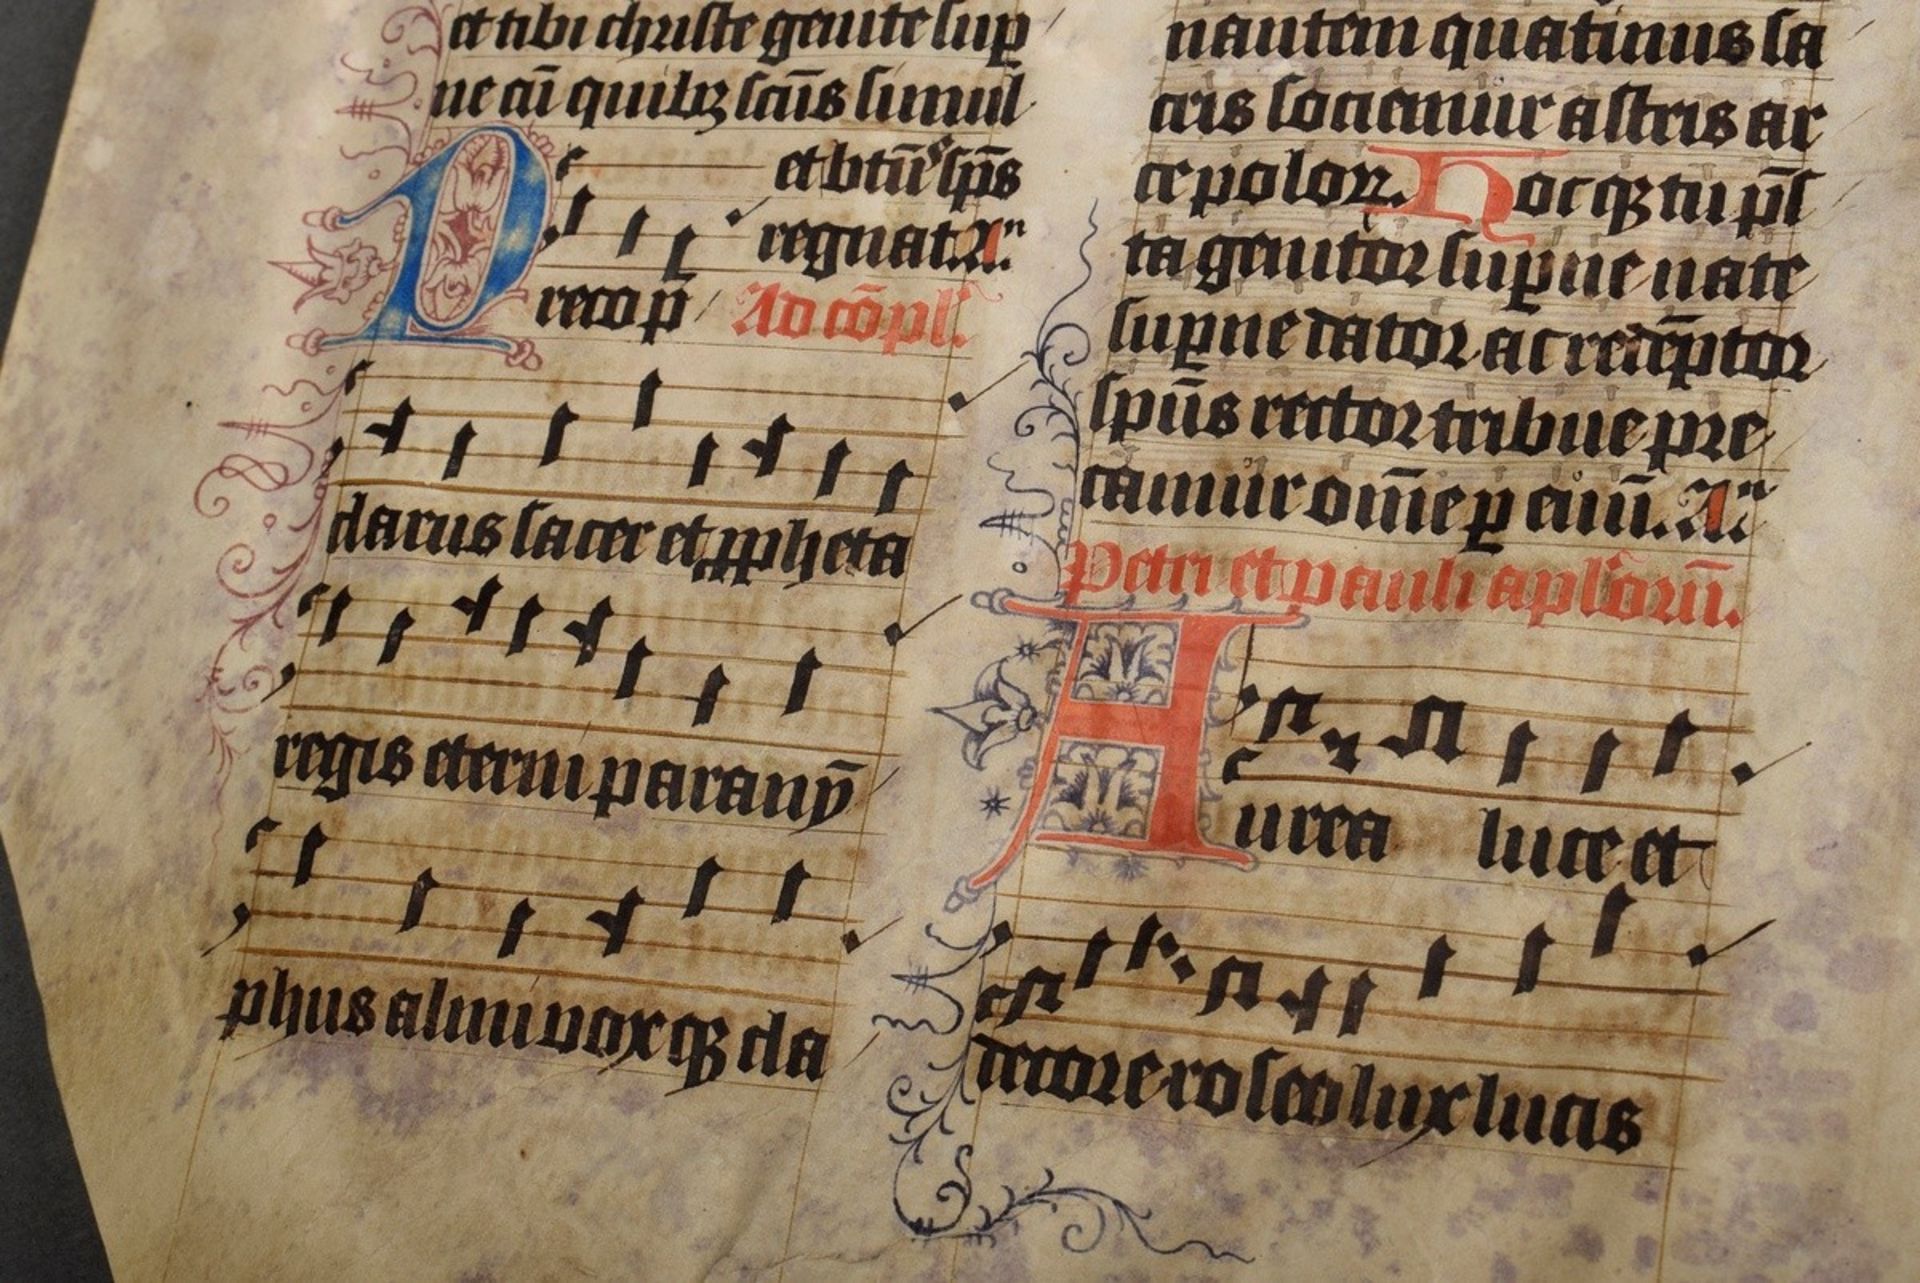 et tibi christe genite sup̄
ne cū quibꝫ scūs simul
et btūs sp̄s
regnat. Aⁿ.
P reco p̄ Ad cōpl'.
clarus sacer et ꝓpheta
regis eterni parany̅
phus almi voxqꝫ cla
nautem quatinus sa
cris sociemur astris ar
ce poloꝝ. Hocqꝫ tu p̄s
ta genitor suꝑne nate
suꝑne dator ac redēptor
spūs rector tribue pre
camur om̄e ꝑ euū. Aⁿ.
Petri et pauli apl'orū.
Aurea luce et
decore roseo lux lucis